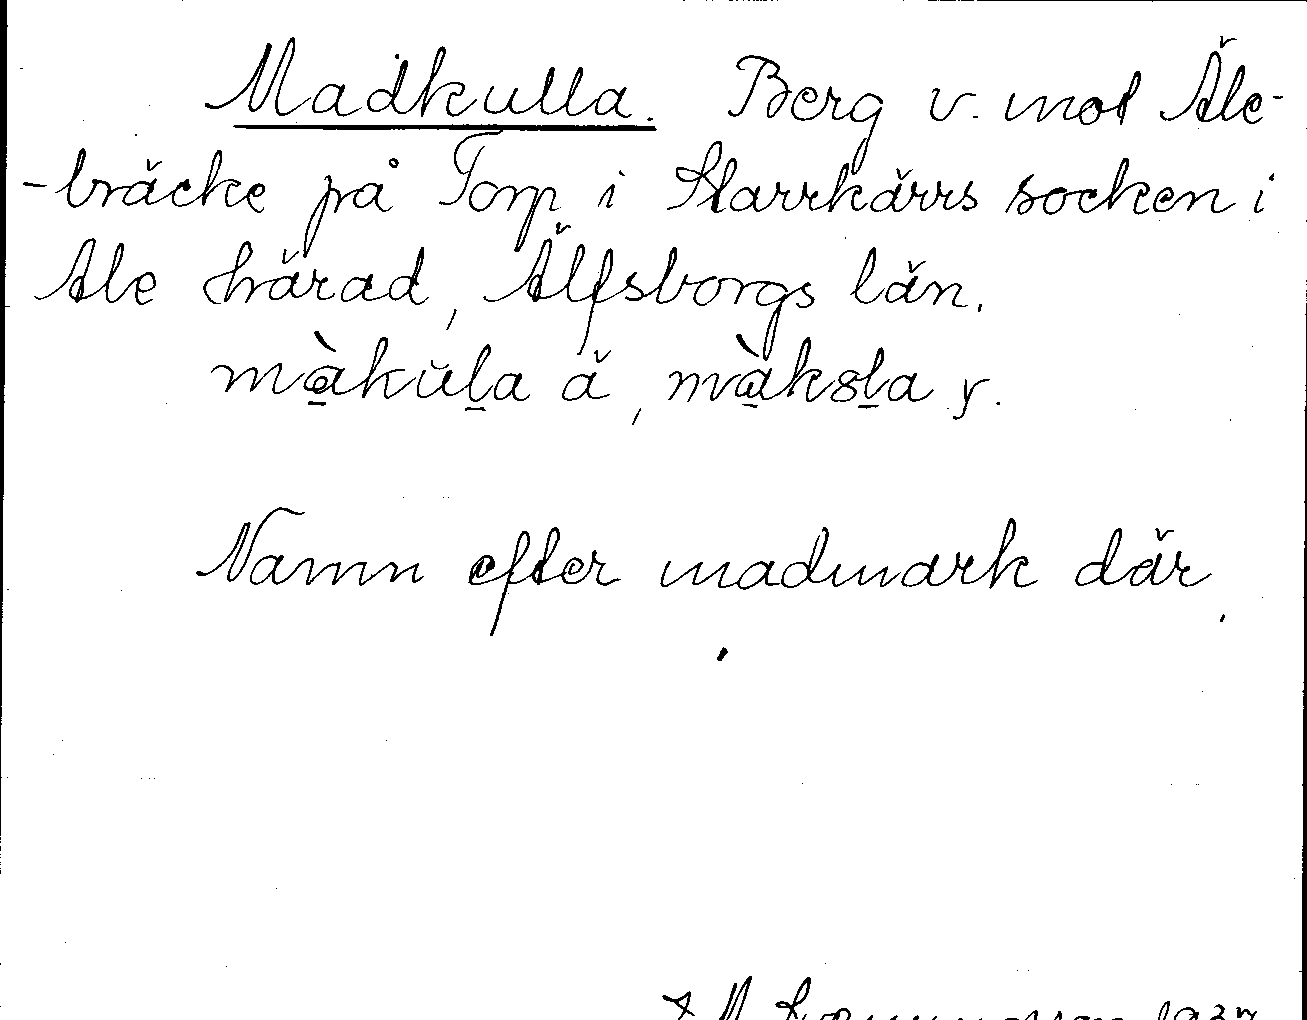 Madkulla. Berg v. mot Äle-
-bräcke på Torp i Starrkärrs socken i
Ale härad, Älfsborgs län.
màkŭla ä, màksla y.
Namn efter madmark där.